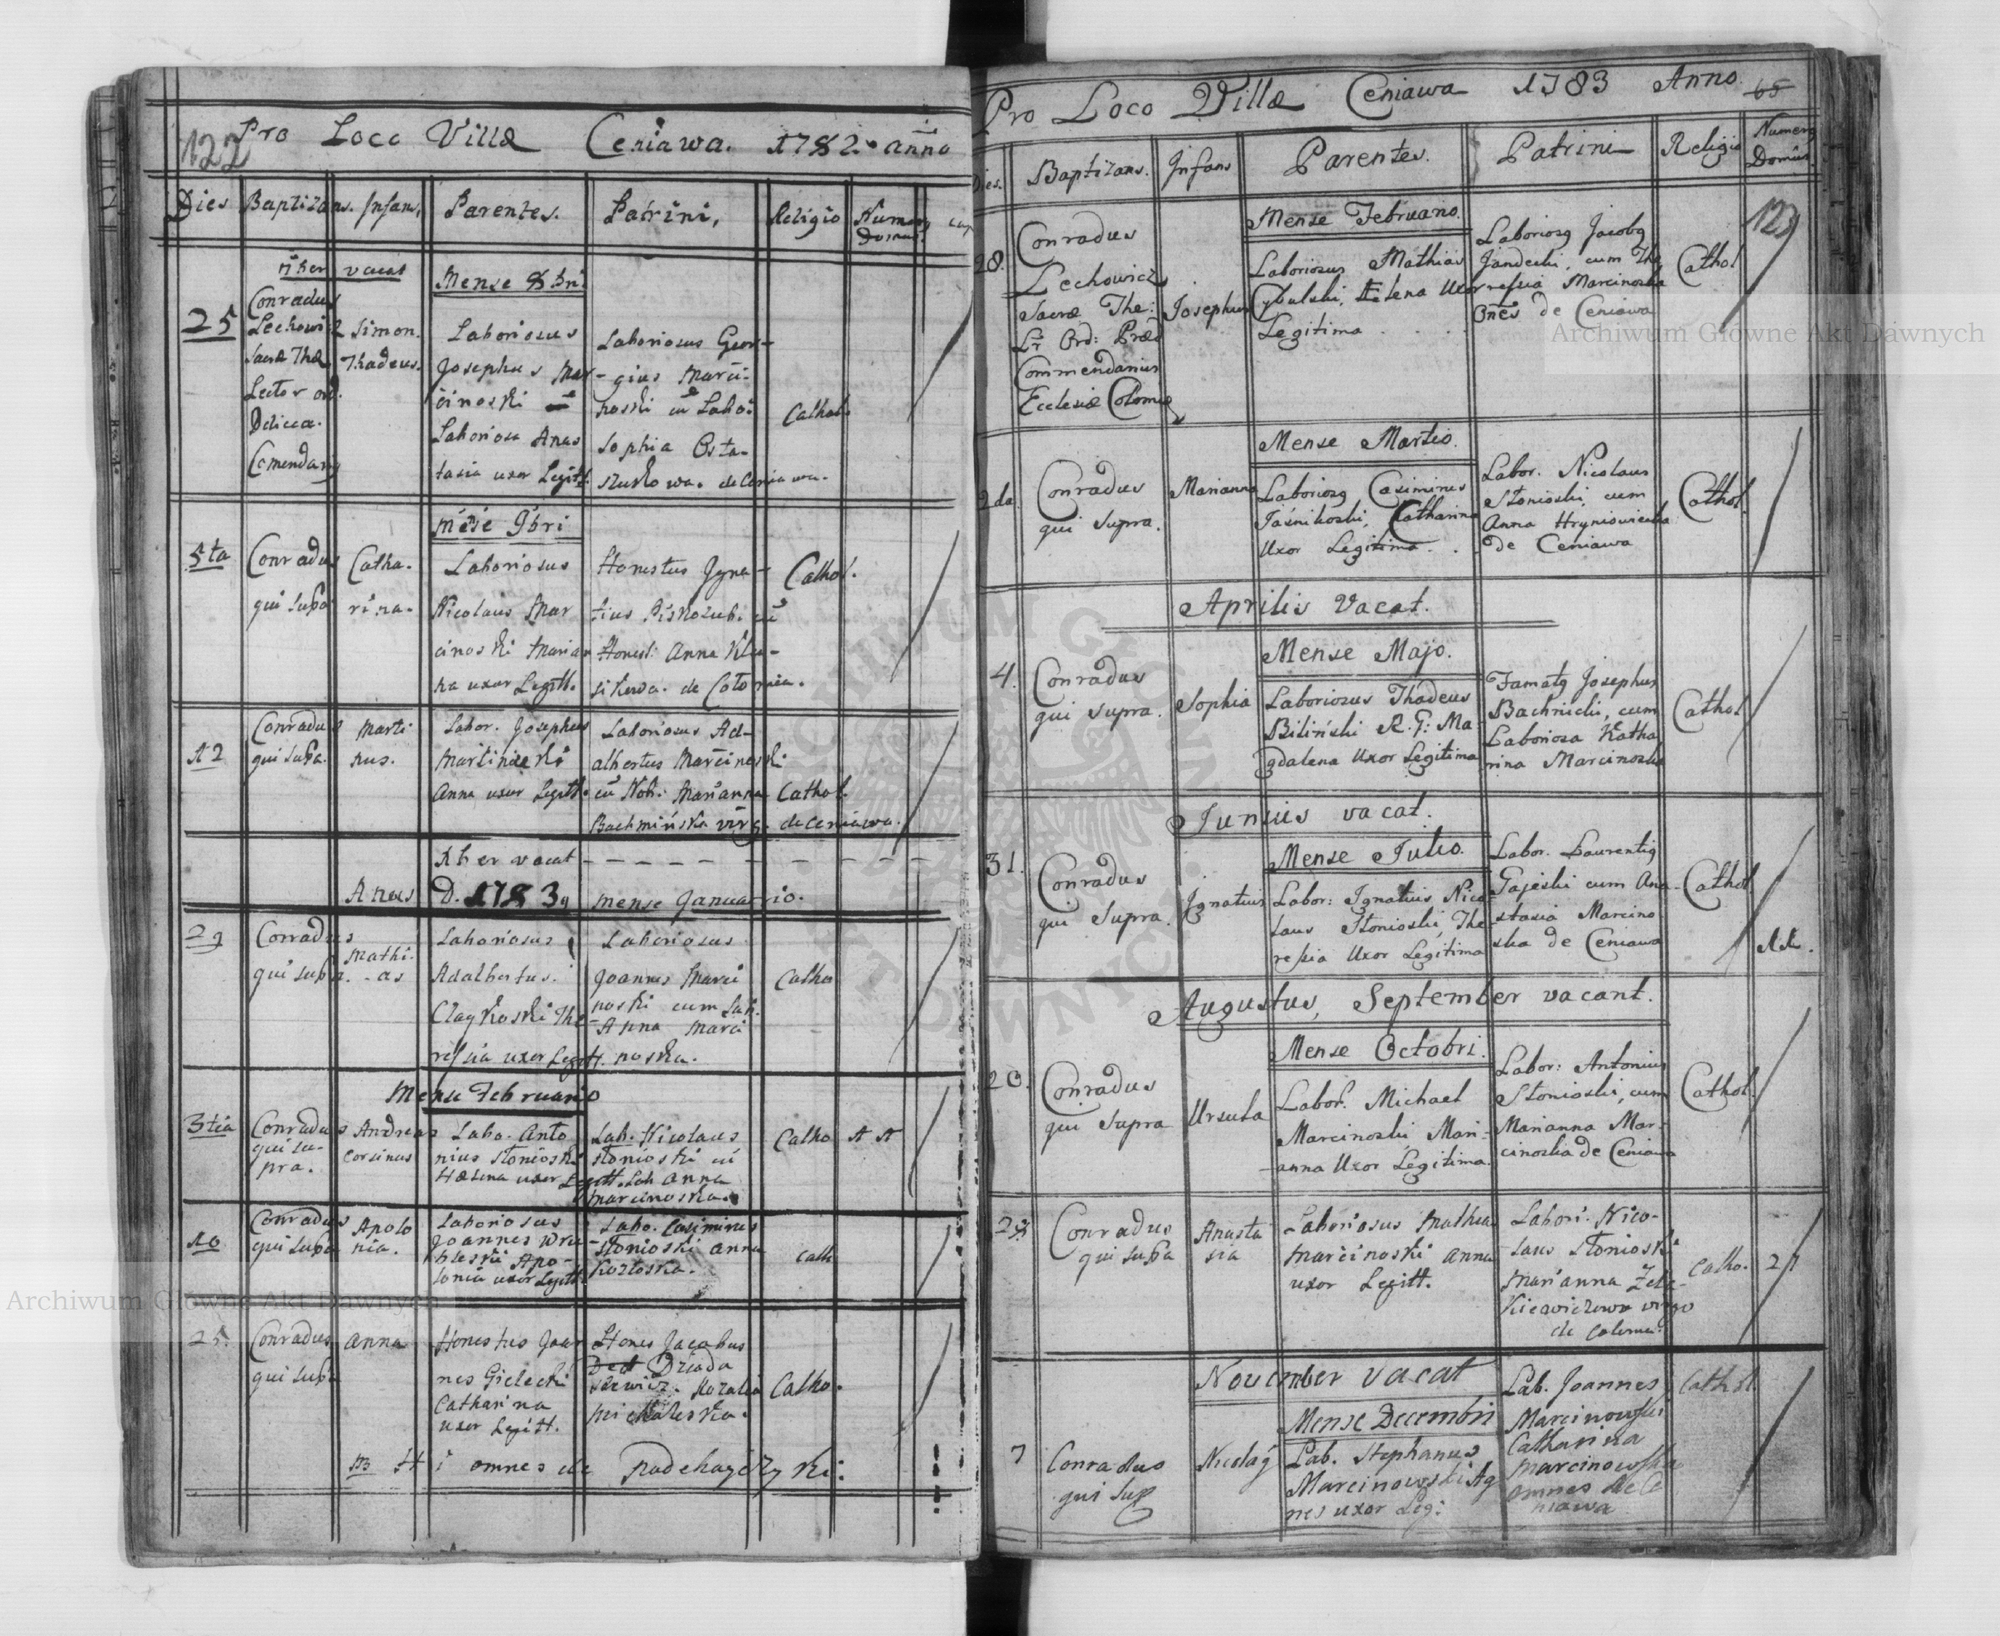 122
Pro Loco Villæ Ceniawa. 1782. anno
Dies Baptizans. Infans, Parentes. Patrini, Religio Numerq Domus.
7ber vacat
Mense 8bri
25
Conradus
Lechowicz
Sacræ Thæ
Lector ord.
Comendarq
Simon.
Thadeus.
Laboriosus
Josephus Mar-
cinoski
Laboriosa Anas
tasia uxor Legitt.
Laboriosus Geor-
gius Marci-
noski cū Labo:
Sophia Osta-
szukowa. de Ceniawa.
Cathol.
mēse 9bri
5ta
Conradus
qui supa
Catha.
rina.
Laboriosus
Nicolaus Mar
cinoski Marian
na uxor Legitt.
Honestus Igna-
tius Piskozub. cū
Honest: Anna Klu-
sikowa. de Colomea.
Cathol.
12
Conradus
qui supa.
Marti
nus.
Labor. Josephus
Martinieeki
Anna uxor Legitt.
Laboriosus Ad-
albertus Marcinoski
cū Nob: Marianna
Bachmińska virg. de Ceniawa.
Cathol.
Xber vacat - - - - - - - -
Annus D. 1783q mense Januario.
29
Conradus
qui supa.
Mathi-
as
Laboriosus
Adalbertus.
Claykoski The
ressia uxor Legitt.
Laboriosus
Joannes Marci
noski cum Lab.
Anna Marci
noska.
Catho
Mense Februario
3tia
Conradus
qui su-
pra.
Andreas
Corsinus
Labo. Anto
nius Stonioski
Hælena uxor Legitt.
Lab. Nicolaus
Stonioski cū
Lab Anna
Marcinoska.
Catho
10
Conradus
qui supa
Apolo
nia.
Laboriosus
Joannes Wru
bleski Apo-
lonia uxor Legitt.
Labo. Casimirus
Stonioski Anna
Kozloska.
Cath
25.
Conradus
qui supa
Anna
Honestus Joan
nes Gielecki
Catharina
uxor Legitt.
Hones Jacobus
Dziada
szewicz. Rozalia
Michaleska.
Catho.
NB Hi omnes de Podehayczyki:
Pro Loco Villæ Ceniawa 1783 Anno.
65
123
Dies. Baptizans. Infans Parentes. Patrini Religio Numerq Domus.
Mense Februario.
28.
Conradus
Lechowicz
Sacræ The:
Lr Ord: Præd
Commendarius
Ecclesiæ Colomeę
Josephus
Laboriosus Mathias
Cybulski, Helena Uxor
Legitima . . .
Laboriosq Jacobq
Jandecki, cum The
ressia Marcinoska
Ōnes de Ceniawa
Cathol
Mense Martio.
2da
Conradus
qui supra.
Marianna
Laboriosq Casimirus
Jaśnikoski, Catharina
Uxor Legitima . . .
Labor. Nicolaus
Stonioski, cum
Anna Hryniowiecka
de Ceniawa
Cathol.
Aprilis Vacat.
Mense Majo.
4.
Conradus
qui supra.
Sophia
Laboriosus Thadeus
Biliński R. G: Ma-
gdalena Uxor Legitima
Famatq Josephus
Bachnicki, cum
Laboriosa Katha
rina Marcinoska
Cathol
Junius vacat.
Mense Julio.
31.
Conradus
qui supra.
Ignatius
Labor: Ignatius Nico-
laus Stonioski, The
ressia Uxor Legitima
Labor. Laurentiq
Gajeski cum Ana-
stasia Marcino
ska de Ceniawa
Cathol
Augustus, September vacant.
Mense Octobri.
20.
Conradus
qui supra
Ursula
Labor. Michael
Marcinoski Mari-
anna Uxor Legitima.
Labor: Antonius
Stonioski, cum
Marianna Mar-
cinoska de Ceniawa
Cathol.
28
Conradus
qui supa
Anasta
sia
Laboriosus Mathias
Marcinoski Anna
uxor Legitt.
Labori. Nico-
laus Stonioski
Marianna Zela-
kiewiczowa virgo
de Colomea.
Catho.
27
November vacat
Mense Decembri
7
Conradus
qui sup
Nicolaq
Lab. Stephanus
Marcinowski Ag
nes uxor Leg:
Lab. Joannes
Marcinowski
Catharina
Marcinowska
omnes de Ce
niawa
Cathol.
Archiwum Główne Akt Dawnych
Archiwum Główne Akt Dawnych